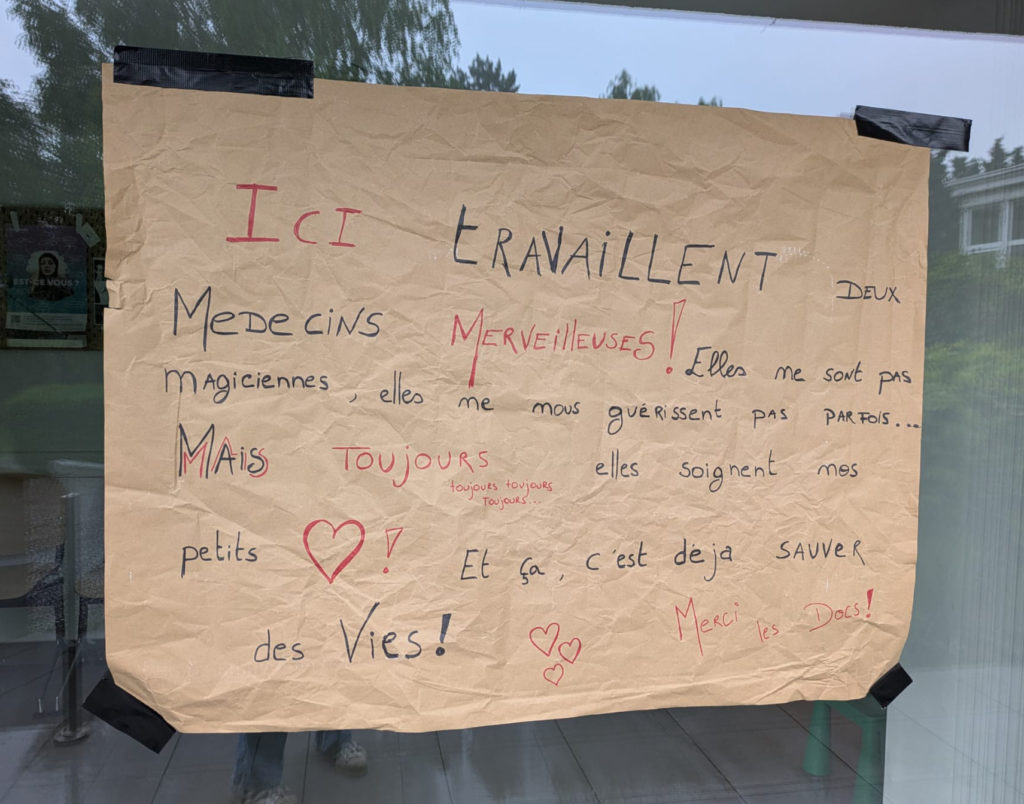 ICI travaillent deux
Medecins Merveilleuses! Elles ne sont pas
magiciennes, elles ne nous guérissent pas parfois...
Mais toujours elles soignent nos
toujours toujours
toujours...
petits ♡! Et ça, c'est déja sauver
des Vies! Merci les Docs!
EST-CE VOUS ?